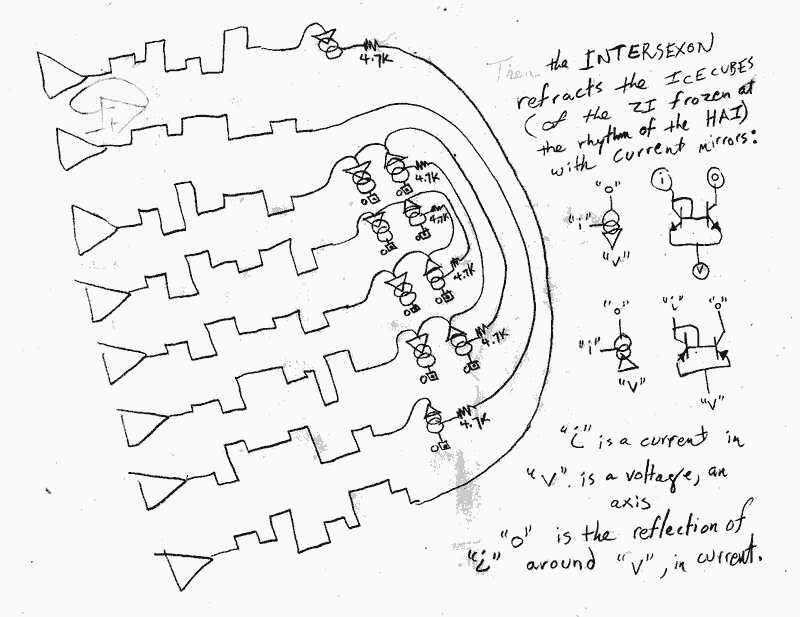 Then the INTERSEXON
refracts the ICECUBES
(of the ZI frozen at
the rhythm of the HAI)
with current mirrors:
4.7K
4.7K
4.7K
4.7K
4.7K
4.7K
"o"
"i"
"V"
i
o
V
"o"
"i"
"V"
"i"
"o"
"V"
"i" is a current in
"V" is a voltage, an
axis
"o" is the reflection of
"i" around "V", in current.